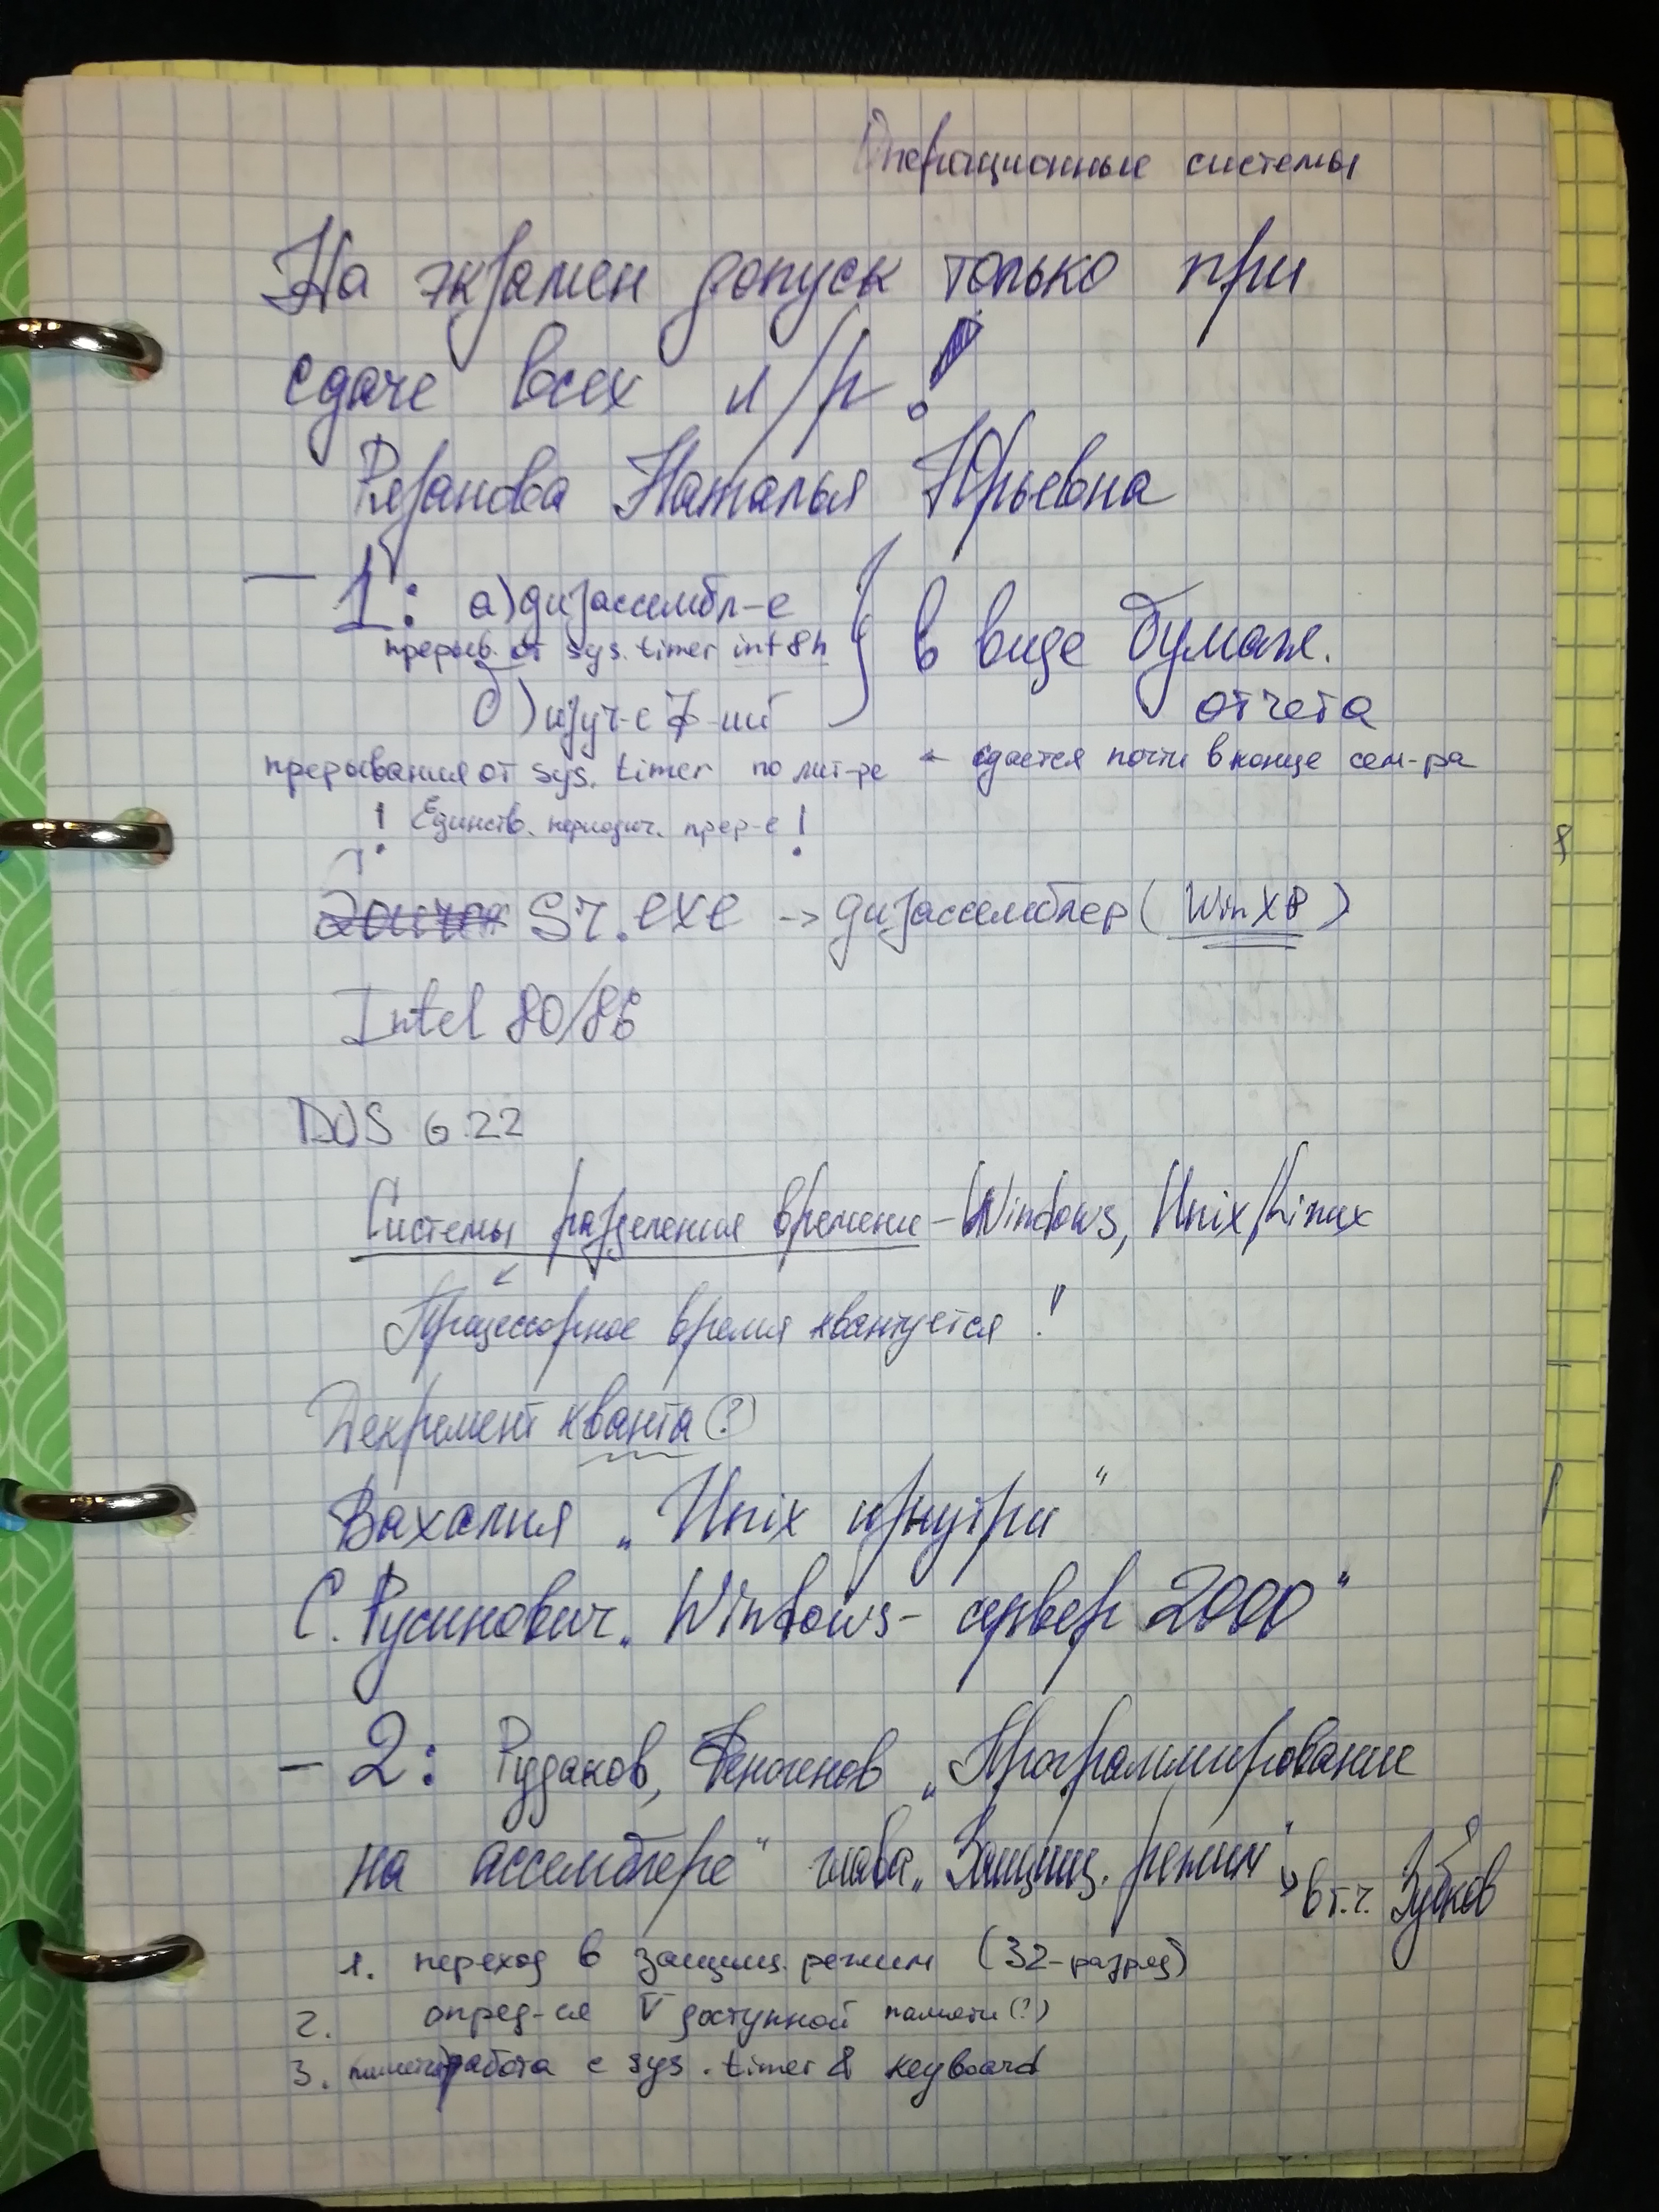 Операционные системы
На экзамен допуск только при
сдаче всех л/р!
Рязанова Наталья Юрьевна
– 1: а) дизассембл-е
прерыв. от sys. timer int 8h
б) изуч-е ф-ий
} в виде бумаж.
отчета
прерывания от sys. timer по лит-ре ← сдается почти в конце сем-ра
! Единств. периодич. прер-е !
Sr.exe -> дизассемблер (WinXP)
Intel 80/86
DOS 6.22
Системы разделения времени – Windows, Unix/Linux
Процессорное время квантуется!
Декремент кванта (?)
Вахалия „Unix изнутри“
С. Русинович „Windows - сервер 2000“
– 2: Рудаков, Финогенов „Программирование
на ассемблере“ глава „Защищ. режим“ → в т.ч. Зубков
1. переход в защищ. режим (32-разряд)
2. опред-ие V доступной памяти (?)
3. работа с sys. timer & keyboard